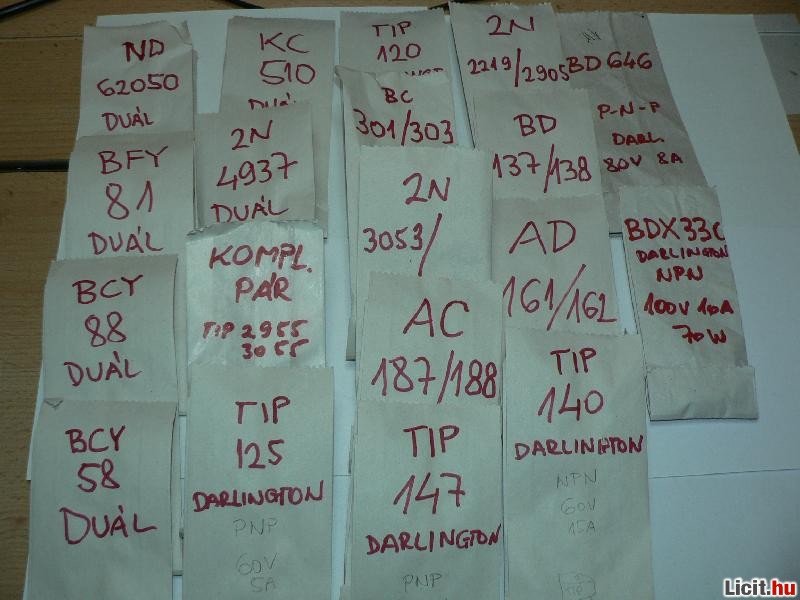 ND
62050
DUÁL
KC
510
DUÁL
TIP
120
2N
2219/2905
BD 646
P-N-P
DARL.
80V 8A
BFY
81
DUÁL
2N
4937
DUÁL
BC
301/303
BD
137/138
2N
3053/
AD
161/162
BDX33C
DARLINGTON
NPN
100V 10A
70W
BCY
88
DUÁL
KOMPL.
PÁR
TIP 2955
3055
AC
187/188
BCY
58
DUÁL
TIP
125
DARLINGTON
PNP
60V
5A
TIP
147
DARLINGTON
PNP
TIP
140
DARLINGTON
NPN
60V
15A
Licit.hu